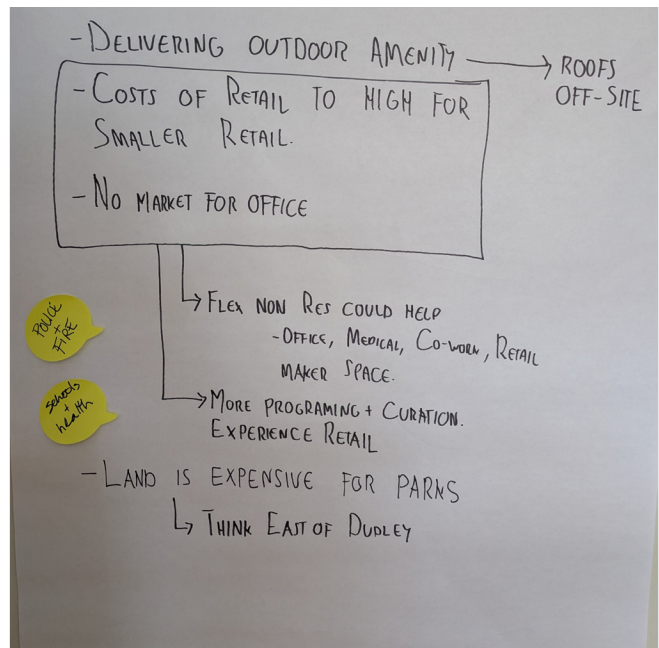 - DELIVERING OUTDOOR AMENITY
ROOFS
OFF-SITE
- COSTS OF RETAIL TO HIGH FOR
SMALLER RETAIL.
- NO MARKET FOR OFFICE
FLEX NON RES COULD HELP
- OFFICE, MEDICAL, CO-WORK, RETAIL
MAKER SPACE.
POLICE
+
FIRE
MORE PROGRAMING + CURATION.
EXPERIENCE RETAIL
schools
+
health
- LAND IS EXPENSIVE FOR PARKS
THINK EAST OF DUDLEY